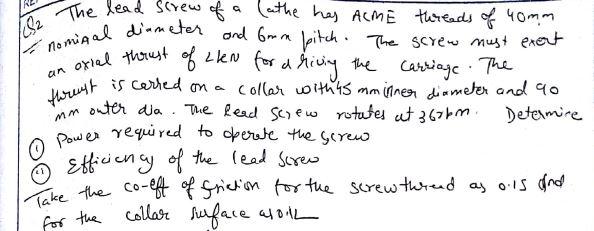 Q2 The lead screw of a Lathe has ACME threads of 40mm
nominal diameter and 6mm pitch. The screw must exert
an axial thrust of 2kN for driving the carriage. The
thrust is carried on a collar with 45 mm inner diameter and 90
mm outer dia. The lead screw rotates at 36rpm. Determine
(i) Power required to operate the screw
(ii) Efficiency of the lead screw
Take the co-eff of friction for the screw thread as 0.15 and
for the collar surface as 0.12